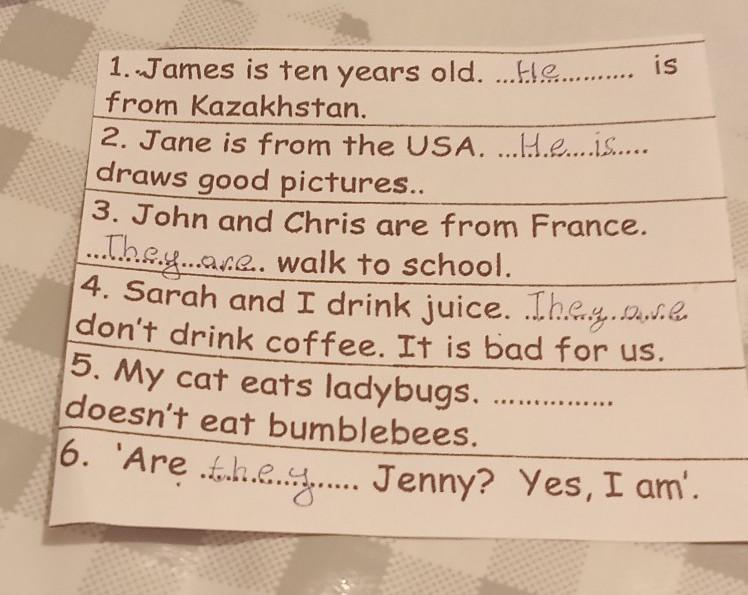 1. James is ten years old. ...He............ is
from Kazakhstan.
2. Jane is from the USA. ...He....is.....
draws good pictures..
3. John and Chris are from France.
...They...are.. walk to school.
4. Sarah and I drink juice. .They.are
don't drink coffee. It is bad for us.
5. My cat eats ladybugs. ...............
doesn't eat bumblebees.
6. 'Are .they...... Jenny? Yes, I am'.